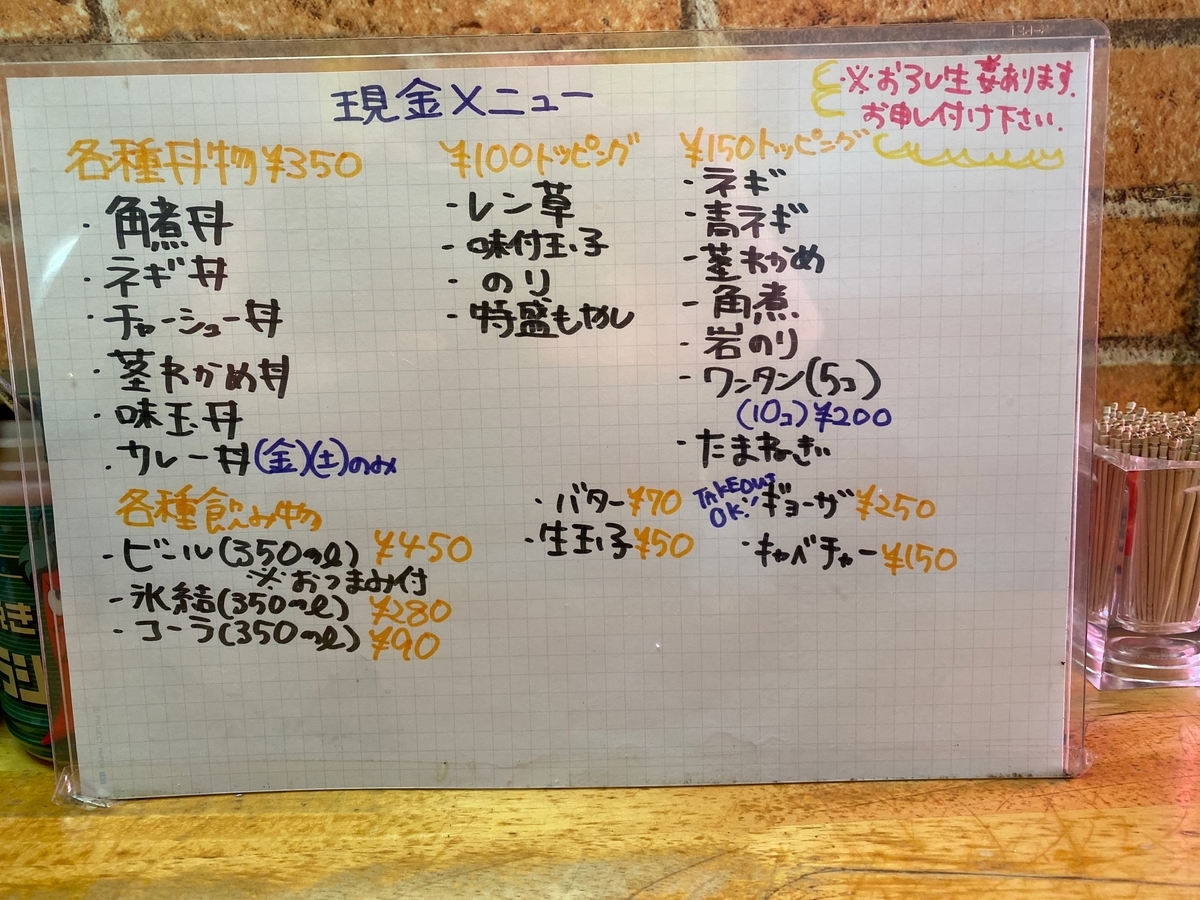 現金メニュー
※おろし生姜あります。
お申し付け下さい。
各種丼物¥350
・角煮丼
・ネギ丼
・チャーシュー丼
・茎わかめ丼
・味玉丼
・カレー丼(金)(土)のみ
各種飲み物
・ビール(350ml) ¥450
※おつまみ付
・氷結(350ml) ¥280
・コーラ(350ml) ¥90
¥100トッピング
・レン草
・味付玉子
・のり
・特盛もやし
¥150トッピング
・ネギ
・青ネギ
・茎わかめ
・角煮
・岩のり
・ワンタン(5コ)
(10コ)¥200
・たまねぎ
・バター¥70
・生玉子¥50
TAKEOUT
OK!
・ギョーザ¥250
・キャベチャー¥150